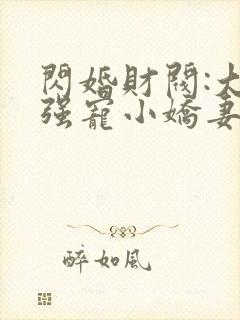 閃婚財閥:大
强寵小嬌妻
醉如風